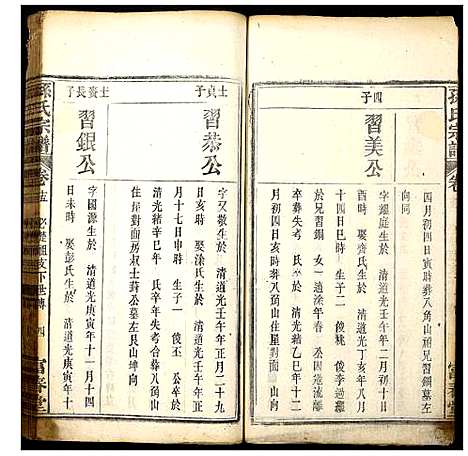 孫氏宗譜
卷
富春堂
四月初四日寅時葬八角山胞兄習銅墓左
向同
四子
習美公
字耀庭生於 清道光壬午年二月初十日
酉時 娶龔氏生於 清道光丁亥年八月
十四日巳時 生子二 俊桃 俊李過繼
於兄習銅 女一適涂年春 公因遊流離
失考 氏卒於 清光緒乙巳年十二
月初四日亥時葬八角山住屋對面 山向
士貞子
習恭公
字又敬生於 清道光壬午年正月二十九
日亥時 娶涂氏生於 清道光壬午年正
月十七日申時 生子一 俊丕 公卒於
清光緒辛巳年 氏卒年失考合葬八角山
住屋對面房叔士葑公墓左艮山坤向
士葵長子
習銀公
字國源生於 清道光庚寅年十一月十四
日未時 娶彭氏生於 清道光庚寅年十
孫氏宗譜
卷十五
必楚祖支下世傳
四
富春堂